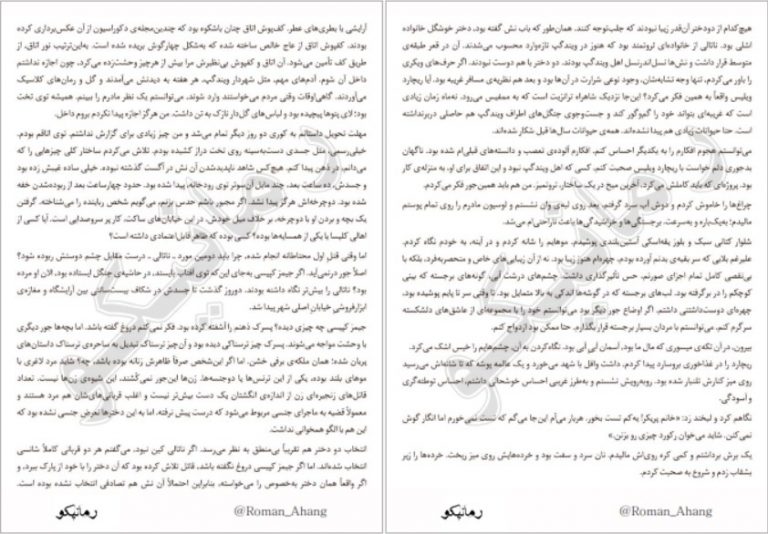 هیچ‌کدام از دو دختر آن‌قدر زیبا نبودند که جلب‌توجه کنند. همان‌طور که باب نش گفته بود، دختر خوشگل خانواده
اشلی بود. ناتالی از خانواده‌ای ثروتمند بود که هنوز در ویندگپ تازه‌وارد محسوب می‌شدند. آن در قعر طبقه‌ی
متوسط قرار داشت و نش‌ها نسل‌اندرنسل اهل ویندگپ بودند. دو دختر با هم دوست نبودند. اگر حرف‌های ویکری
را باور می‌کردم، تنها وجه تشابه‌شان، وجود نوعی شرارت در آن‌ها بود و بعد هم نظریه‌ی مسافر غریبه بود. آیا ریچارد
ویلیس واقعاً به همین فکر می‌کرد؟ این‌جا نزدیک شاهراه ترانزیت است که به ممفیس می‌رود. نه‌ماه زمان زیادی
است که غریبه‌ای بتواند خود را گم‌وگور کند و جست‌وجوی جنگل‌های اطراف ویندگپ هم حاصلی دربرنداشته
است. حتا حیوانات زیادی هم پیدا نشده‌اند. همه‌ی حیوانات سال‌ها قبل شکار شده‌اند.
می‌توانستم هجوم افکارم را به یکدیگر احساس کنم. افکار آلوده‌ی تعصب و دانسته‌های قبلی‌ام شده بود. ناگهان
بدجوری دلم خواست با ریچارد ویلیس صحبت کنم. کسی که اهل ویندگپ نبود و این اتفاق برای او، به منزله‌ی کار
بود. پروژه‌ای که باید کاملش می‌کرد. آخرین میخ در یک ساختار، تروتمیز. من هم باید همین‌جور فکر می‌کردم.
چراغ‌ها را خاموش کردم و دوش آب سرد گرفتم. بعد روی لبه‌ی وان نشستم و لوسیون مادرم را روی تمام پوستم
مالیدم؛ به‌یک‌باره و به‌سرعت. برجستگی‌ها و خراشیدگی‌ها باعث ناراحتی‌ام می‌شد.
شلوار کتانی سبک و بلوز یقه‌اسکی آستین‌بلندی پوشیدم. موهایم را شانه کردم و در آینه، به خودم نگاه کردم.
علیرغم بلایی که سر بقیه‌ی بدنم آورده بودم، چهره‌ام هنوز زیبا بود. نه از آن زیبایی‌های خاص و منحصربه‌فرد، بلکه با
بی‌نقصی کامل تمام اجزای صورتم، حس تأثیرگذاری داشت. چشم‌های درشت آبی، گونه‌های برجسته که بینی
کوچکم را در برگرفته بود. لب‌های برجسته که در گوشه‌ها اندکی به بالا متمایل بود. تا وقتی سر تا پایم پوشیده بود،
چهره‌ای دوست‌داشتنی داشتم. اگر اوضاع جور دیگر بود می‌توانستم خود را با مجموعه‌ای از عاشق‌های دلشکسته
سرگرم کنم. می‌توانستم با مردان بسیار برجسته قرار بگذارم. حتا ممکن بود ازدواج کنم.
بیرون، در آن تکه‌ی میسوری که مال ما بود، آسمان آبی آبی بود. نگاه‌کردن به آن، چشم‌هایم را خیس اشک می‌کرد.
ریچارد را در غذاخوری بروسارد پیدا کردم. داشت وافل با شهد می‌خورد و یک عالمه پوشه که تا شانه‌اش می‌رسید
روی میز کنارش تلنبار شده بود. روبه‌رویش نشستم و به‌طرز غریبی احساس خوشحالی داشتم، احساس توطئه‌گری
و آسودگی.
نگاهم کرد و لبخند زد: «خانم پریکر! یه‌کم تست بخور. هربار می‌آم این‌جا می‌گم که تست نمی‌خورم اما انگار گوش
نمی‌کنن. شاید می‌خوان رکورد چیزی رو بزنن.»
یک برش برداشتم و کمی کره روی‌اش مالیدم. نان سرد و سفت بود و خرده‌هایش روی میز ریخت. خرده‌ها را زیر
بشقاب زدم و شروع به صحبت کردم.
رمانیکو
@Roman_Ahang
آرایشی با بطری‌های عطر. کف‌پوش اتاق چنان باشکوه بود که چندین‌مجله‌ی دکوراسیون از آن عکس‌برداری کرده
بودند. کفپوش اتاق از عاج خالص ساخته شده که به‌شکل چهارگوش بریده شده است. به‌این‌ترتیب نور اتاق، از
طریق کف تأمین می‌شود. آن اتاق و کفپوش بی‌نظیرش مرا بیش از هرچیز وحشت‌زده می‌کرد، چون اجازه نداشتم
داخل آن شوم. آدم‌های مهم، مثل شهردار ویندگپ، هر هفته به دیدنش می‌آمدند و گل و رمان‌های کلاسیک
می‌آوردند. گاهی‌اوقات وقتی مردم می‌خواستند وارد شوند، می‌توانستم یک نظر مادرم را ببینم. همیشه توی تخت
بود؛ لای پتوها پیچیده بود و لباس‌های گل‌دار نازک به تن داشت. من هرگز اجازه پیدا نکردم بروم داخل.
مهلت تحویل داستانم به کوری دو روز دیگر تمام می‌شد و من چیز زیادی برای گزارش نداشتم. توی اتاقم بودم.
خیلی‌رسمی، مثل جسدی دست‌به‌سینه روی تخت دراز کشیده بودم. تلاش می‌کردم ساختار کلی چیزهایی را که
می‌دانم، در ذهن پیدا کنم. هیچ‌کس شاهد ناپدیدشدن آن نش در آگست گذشته نبوده. خیلی ساده غیبش زده بود
و جسدش، ده ساعت بعد، چند مایل آن‌سوتر توی رودخانه، پیدا شده بود. حدود چهارساعت بعد از ربوده‌شدن خفه
شده بود. دوچرخه‌اش هرگز پیدا نشد. اگر مجبور باشم حدس بزنم، می‌گویم شخص رباینده را می‌شناخته. گرفتن
یک بچه و بردن او با دوچرخه، بر خلاف میل خودش، در این خیابان‌های ساکت، کار پر سروصدایی است. آیا کسی از
اهالی کلیسا یا یکی از همسایه‌ها بوده؟ کسی بوده که ظاهر قابل‌اعتمادی داشته است؟
اما وقتی قتل اول محتاطانه انجام شده، چرا باید دومین مورد ـ ناتالی ـ درست مقابل چشم دوستش ربوده شود؟
اصلاً جور درنمی‌آید. اگر جیمز کپیسی به‌جای این‌که توی آفتاب بایستد، در حاشیه‌ی جنگل ایستاده بود، الان او مرده
بود؟ ناتالی را بیش‌تر نگاه داشته بودند. دوروز گذشت تا جسدش در شکاف بیست‌سانتی بین آرایشگاه و مغازه‌ی
ابزارفروشی خیابان اصلی شهر پیدا شد.
جیمز کپیسی چه چیزی دیده؟ پسرک ذهنم را آشفته کرده بود. فکر نمی‌کنم دروغ گفته باشد. اما بچه‌ها جور دیگری
با وحشت مواجه می‌شوند. پسرک چیز ترسناکی دیده بود و آن چیز ترسناک تبدیل به ساحره‌ی ترسناک داستان‌های
پریان شده؛ همان ملکه‌ی برفی خشن. اما اگر این‌شخص صرفاً ظاهرش زنانه بوده باشد، چه؟ شاید مرد لاغری با
موهای بلند بوده، یکی از این ترنس‌ها یا دوجنسه‌ها. زن‌ها این‌جور نمی‌کُشند، این شیوه‌ی زن‌ها نیست. تعداد
قاتل‌های زنجیره‌ای زن از اندازه‌ی انگشتان یک دست بیش‌تر نیست و اغلب قربانی‌های‌شان هم مرد هستند و
معمولاً قضیه به ماجرای جنسی مربوط می‌شود که درست پیش نرفته. اما به این دخترها تعرض جنسی نشده بود که
این هم با الگو همخوانی نداشت.
انتخاب دو دختر هم تقریباً بی‌منطق به نظر می‌رسد. اگر ناتالی کین نبود، می‌گفتم هر دو قربانی کاملاً شانسی
انتخاب شده‌اند. اما اگر جیمز کپیسی دروغ نگفته باشد، قاتل تلاش کرده بود که آن دختر را با خود از پارک ببرد، و
اگر واقعاً همان دختر به‌خصوص را می‌خواسته، بنابراین احتمالاً آن نش هم تصادفی انتخاب نشده بوده است.
رمانیکو
@Roman_Ahang